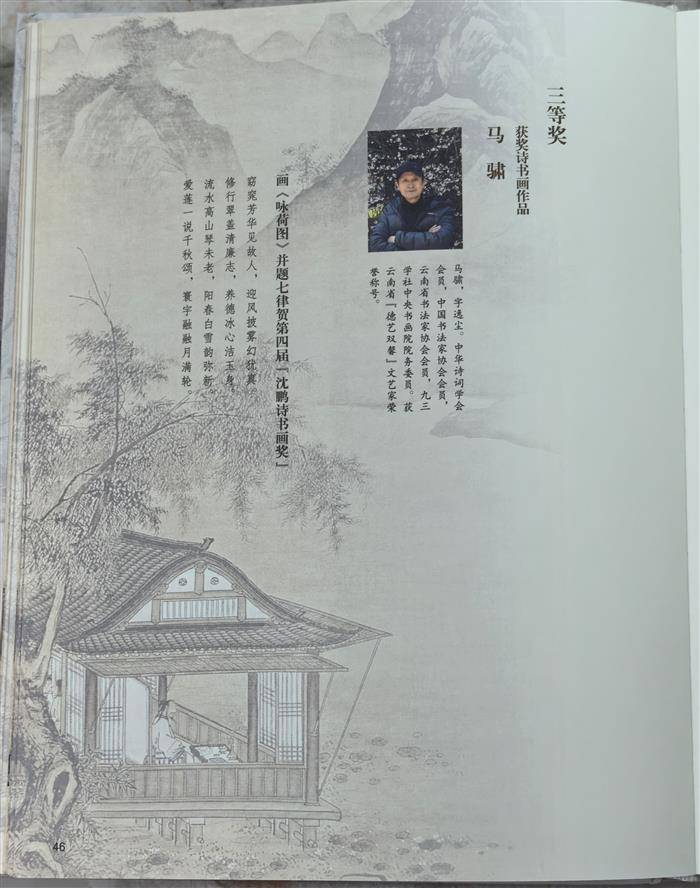 三等奖
获奖诗书画作品
马骕
马骕，字逸尘。中华诗词学会
会员，中国书法家协会会员，
云南省书法家协会会员，九三
学社中央书画院院务委员。获
云南省“德艺双馨”文艺家荣
誉称号。
画《咏荷图》并题七律贺第四届“沈鹏诗书画奖”
窈窕芳华见故人，迎风披雾幻犹真。
修行翠盖清廉志，养德冰心洁玉身。
流水高山琴未老，阳春白雪韵弥新。
爱莲一说千秋颂，寰宇融融月满轮。
46